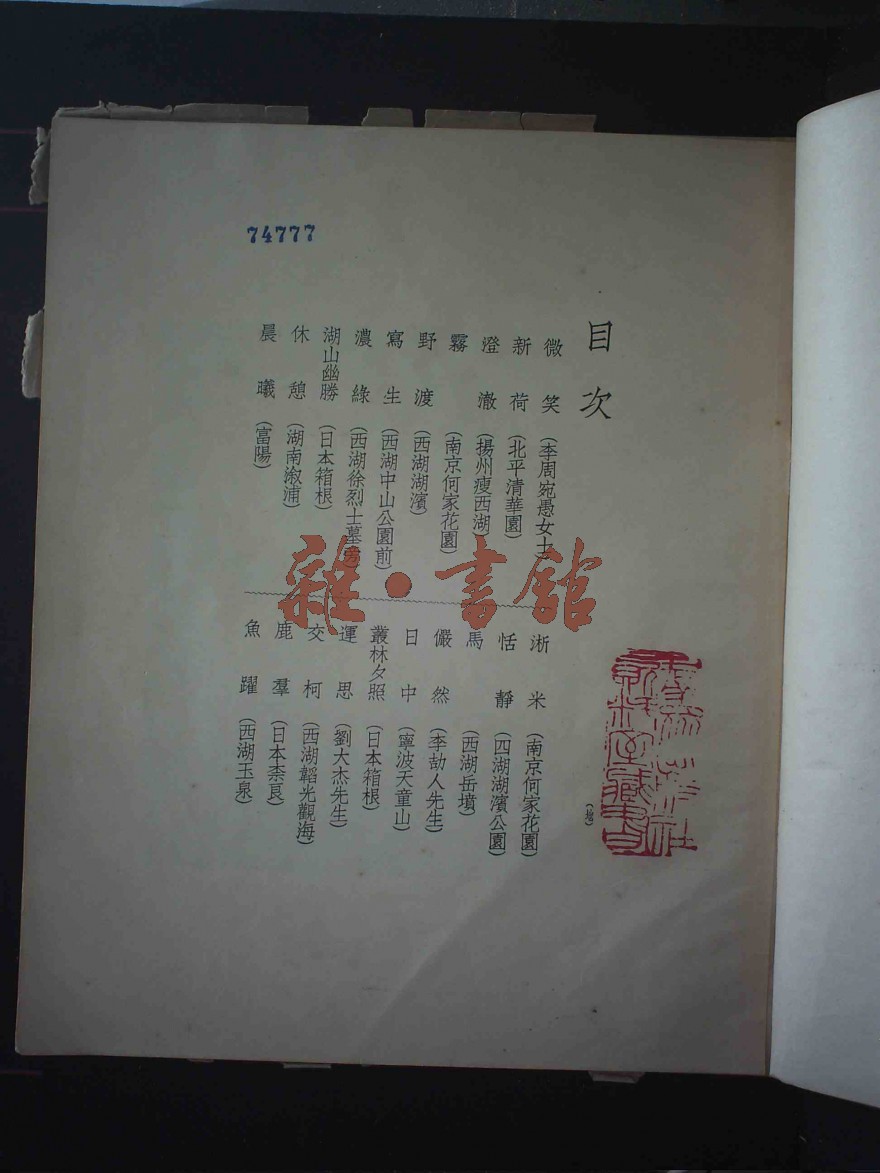 74777
目次
微笑(李周宛愚女士)
新荷(北平清華園)
澄澈(揚州瘦西湖)
霧(南京何家花園)
野渡(西湖湖濱)
寫生(西湖中山公園前)
濃綠(西湖徐烈士墓旁)
湖山幽勝(日本箱根)
休憩(湖南溆浦)
晨曦(富陽)
淅米(南京何家花園)
恬靜(四湖湖濱公園)
馬(西湖岳墳)
儼然(李劼人先生)
日中(寧波天童山)
叢林夕照(日本箱根)
運思(劉大杰先生)
交柯(西湖韜光觀海)
鹿羣(日本柰良)
魚躍(西湖玉泉)
雜·書館